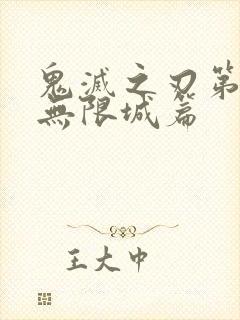 鬼滅之刃第
無限城篇
王大中